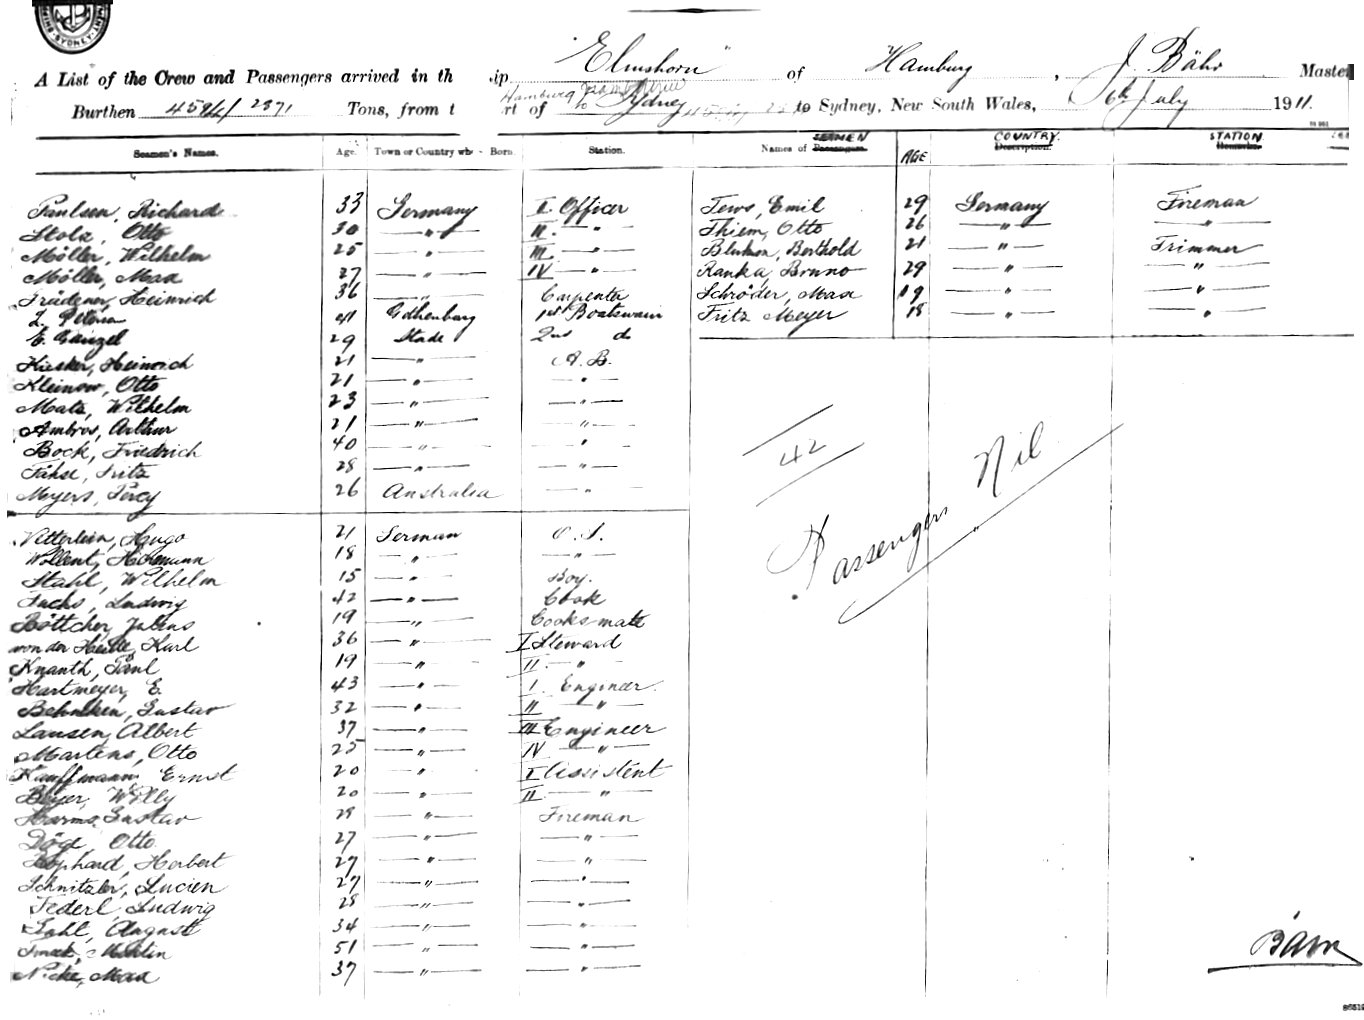 SYDNEY
A List of the Crew and Passengers arrived in th ip "Elmshorn" of Hamburg, J. Bähr Master
Burthen 4594/2871 Tons, from t rt of Hamburg to Sydney to Sydney, New South Wales, 6th July 1911.
Seamen's Names. Age. Town or Country whe Born. Station. Names of Passengers. SEAMEN AGE Description. COUNTRY. Remarks. STATION.
Paulsen, Richard 33 Germany II. Officer Tews, Emil 29 Germany Fireman
Stolz, Otto 30 " II. " Thiem, Otto 26 " "
Möller, Wilhelm 25 " III. " Berthold 21 " Trimmer
Möller, Max 27 " IV " Ranka, Bruno 29 " "
Heinrich 36 " Carpenter Schröder, Max 19 " "
41 Gothenburg 1st Boatswain Fritz Meyer 18 " "
E. Ganzel 29 Stade 2nd do
Kiesker, Heinrich 21 " A. B.
Kleinow, Otto 21 " "
Matz, Wilhelm 23 " "
Ambros, Arthur 21 " "
Bock, Friedrich 40 " "
Fähse, Fritz 28 " "
Meyers, Percy 26 Australia "
42
Passengers Nil
Hugo 21 German O. S.
Hermann 18 " "
Stahl, Wilhelm 15 " Boy.
Fuchs, Ludwig 42 " Cook
Böttcher, Julius 19 " Cooks mate
von der Heide, Karl 36 " I Steward
Knauth, Paul 19 " II. "
Hartmeyer, E. 43 " I. Engineer.
Behnken, Gustav 32 " II "
Lausen, Albert 37 " III Engineer
Martens, Otto 25 " IV "
Kauffmann Ernst 20 " I Assistent
Beyer, Willy 20 " II "
Harms, Gustav 29 " Fireman
Döge, Otto. 27 " "
Herbert 27 " "
Schnitzler, Lucien 27 " "
Federl, Ludwig 28 " "
Gahl, August 34 " "
51 " "
Nicke, Max 37 " "
Bähr